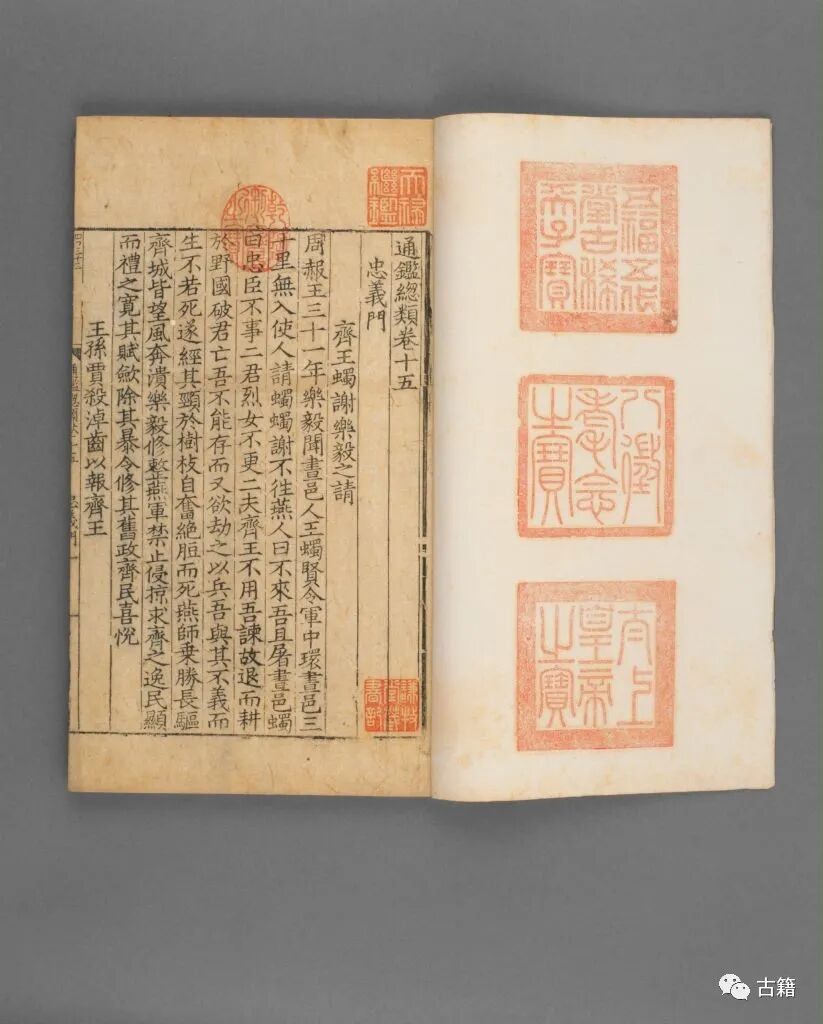 五福五代
堂古稀
天子寶
八徵
耄念
之寶
太上
皇帝
之寶
天祿
繼鑑
乾隆
御覽
之寶
通鑑緫類卷十五
忠義門
齊王蠋謝樂毅之請
周赧王三十一年樂毅聞晝邑人王蠋賢令軍中環晝邑三
十里無入使人請蠋蠋謝不往燕人曰不來吾且屠晝邑蠋
曰忠臣不事二君烈女不更二夫齊王不用吾諫故退而耕
於野國破君亡吾不能存而又欲劫之以兵吾與其不義而
生不若死遂經其頸於樹枝自奮絶脰而死燕師乗勝長驅
齊城皆望風奔潰樂毅修整燕軍禁止侵掠求齊之逸民顯
而禮之寛其賦斂除其暴令修其舊政齊民喜悅
王孫賈殺淖齒以報齊王
謙牧
堂藏
書記
通鑑緫類卷十五
忠義門
古籍